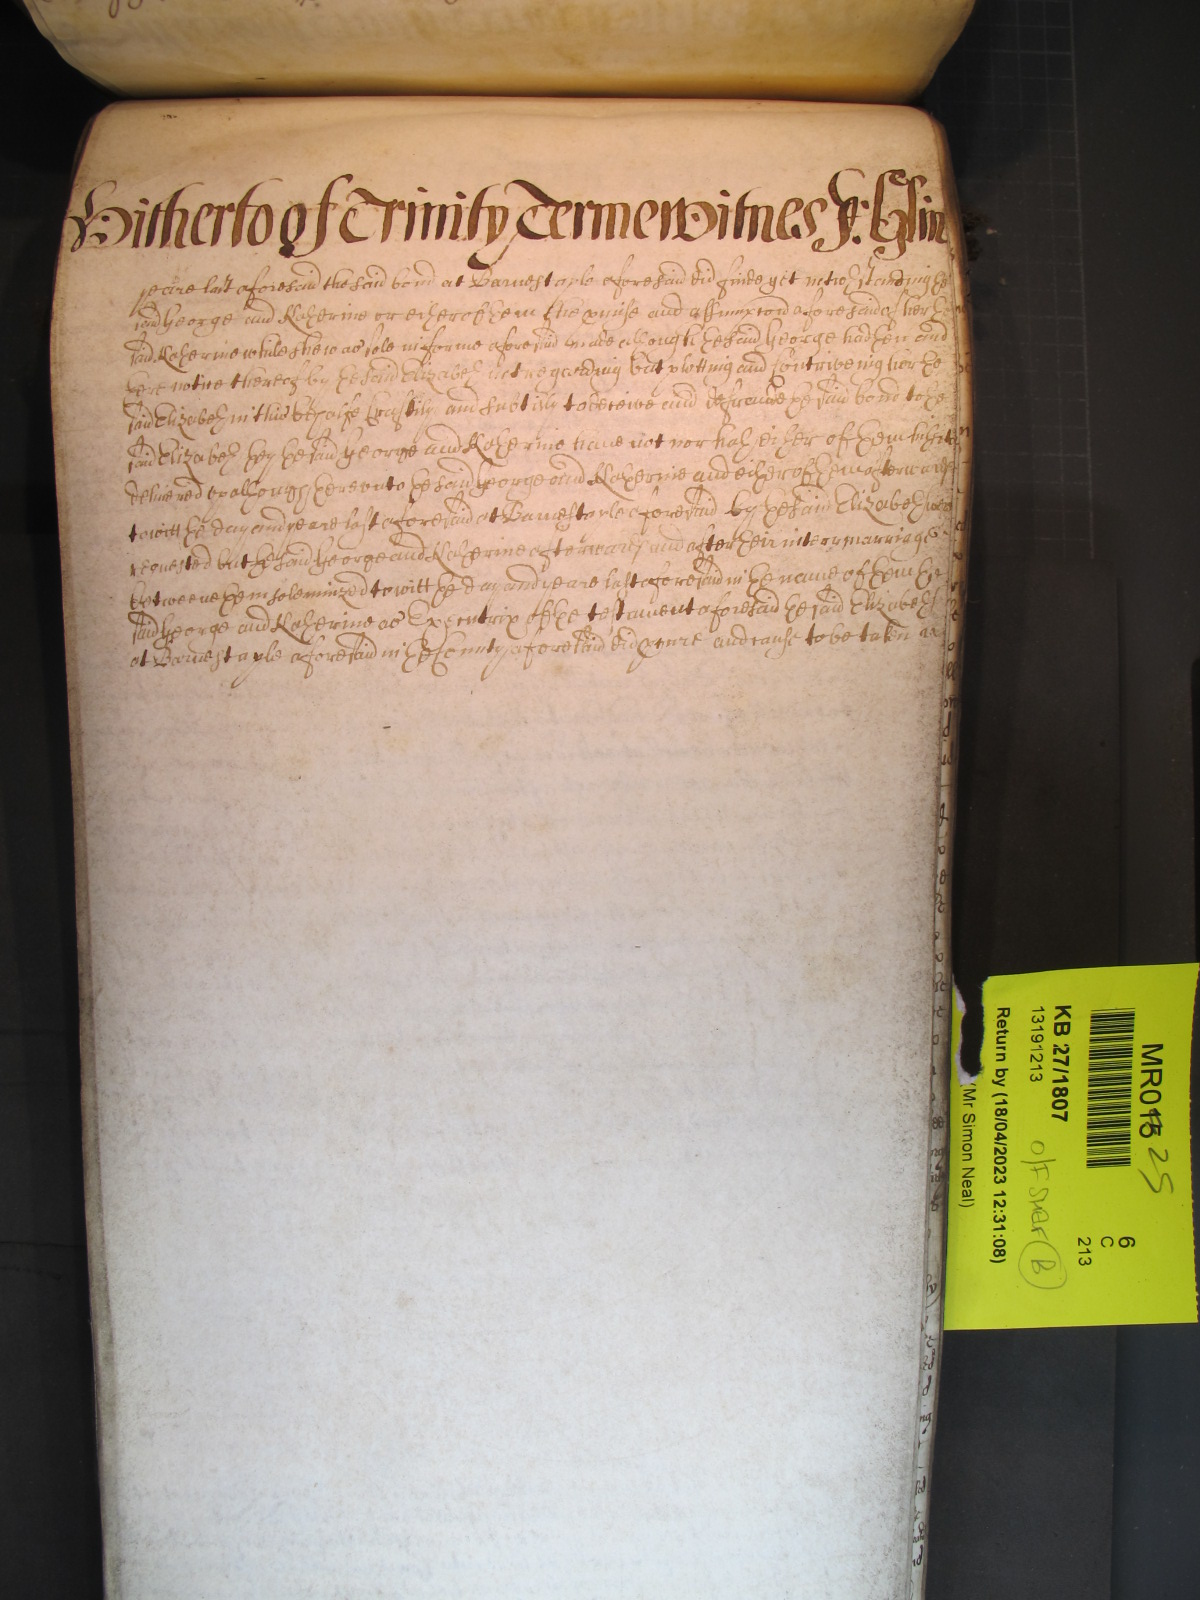 Hitherto of Trinity Terme Witnes
yeare last aforesaid the said bond at Barnestaple aforesaid did finde yet notwithstanding the
said George and Katherine or either of them the promise and assumption aforesaid of her the
said Katherine while shee was sole in forme aforesaid made although the said George had then and
there notice thereof by the said Elizabeth not regarding but plotting and Contriveing her the
said Elizabeth in this behalfe Craftily and subtilly to deceive and defraude the said bond to the
said Elizabeth they the said George and Katherine have not nor hath either of them hitherto
delivered although thereunto the said George and Katherine and either of them afterwards
to witt the day and yeare last aforesaid at Barnestaple aforesaid by the said Elizabeth were
requested but the said George and Katherine afterwards and after their intermarriage
betweene them solemnized to witt the day and yeare last aforesaid in the name of them the
said George and Katherine as Executrix of the testament aforesaid the said Elizabeth
at Barnestaple aforesaid in the County aforesaid did procure and cause to be taken
MR015 25
6
C
213
KB 27/1807
13191213
O/F Shelf B
Return by (18/04/2023 12:31:08)
(Mr Simon Neal)